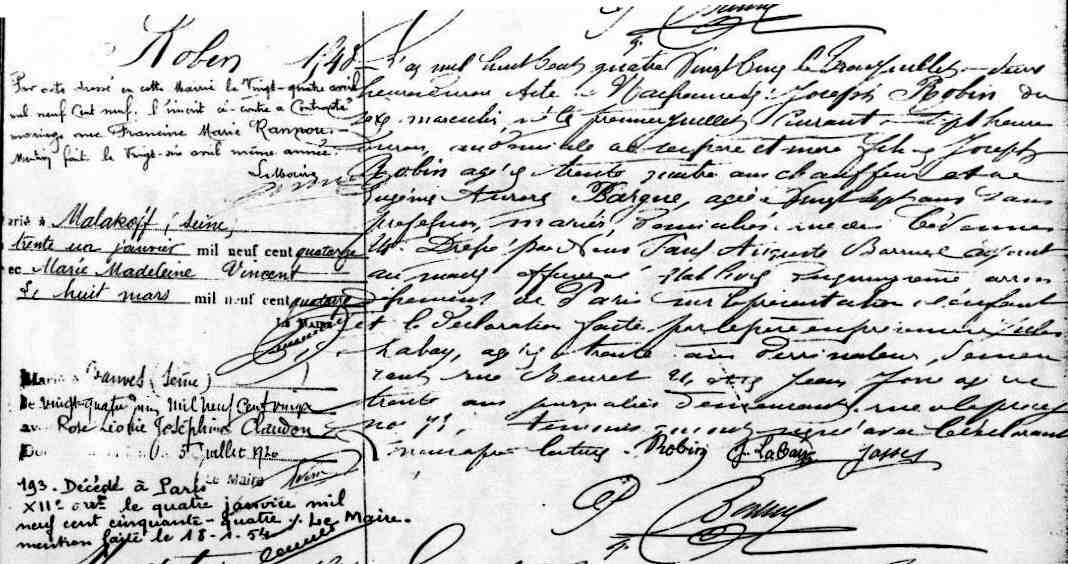 Robin 1,548
Par acte dressé en cette Mairie le Vingt-quatre avril
mil neuf cent neuf, l'inscrit ci-contre a Contracté
mariage avec Francine Marie Rannou.-
Mention faite le Vingt-six avril même année.
Le Maire
Marié à Malakoff, (Seine)
trente un janvier mil neuf cent quatorze
avec Marie Madeleine Vincent
Le huit mars mil neuf cent quatorze
Le Maire
Marié à Vanves (Seine)
Le vingt-quatre juin mil neuf cent vingt
avec Rose Léonie Joséphine Claudon
5 Juillet 1920
Le Maire
193. Décédé à Paris
XIIe arrt le quatre janvier mil
neuf cent cinquante-quatre ./. Le Maire.
mention faite le 18-1-54
L'an mil huit cent quatre Vingt cinq le trois Juillet à deux
heures Acte de Naissance de Joseph Robin du
sexe masculin né le premier Juillet Courant à sept heures
au domicile de ses père et mère fils de Joseph
Robin agé de trente quatre ans chauffeur et de
Eugénie Aurore Bargue, agée de Vingt sept ans sans
profession, mariés, domiciliés rue des Cévennes
Dressé par Nous Paul Auguste adjoint
au maire officier de l'état civil du quinzième arron
dissement de Paris sur la présentation de l'enfant
et la déclaration faite par le père en présence de
Labay, agé de trente ans dessinateur, demeu
rant rue Beuret 21, et de Jean José agé de
trente ans journalier demeurant rue
no témoins qui ont signé avec le déclarant
et nous après lecture. Robin J. Labaye